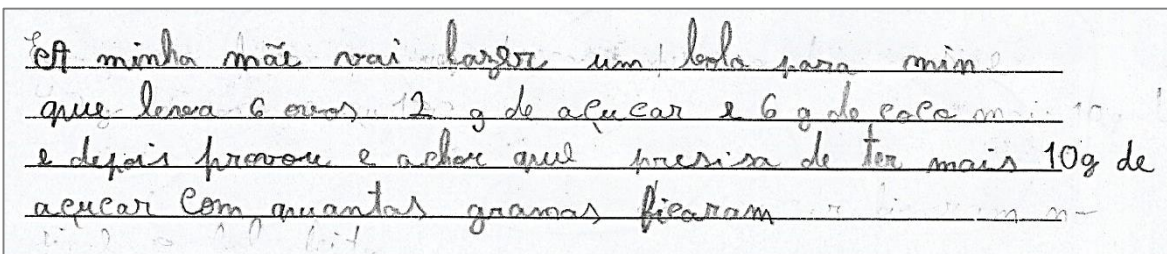 A minha mãe vai fazer um bolo para min
que leva 6 ovos 12 g de açucar e 6 g de coco
e depois provou e achou que presisa de ter mais 10g de
açucar com quantas gramas ficaram